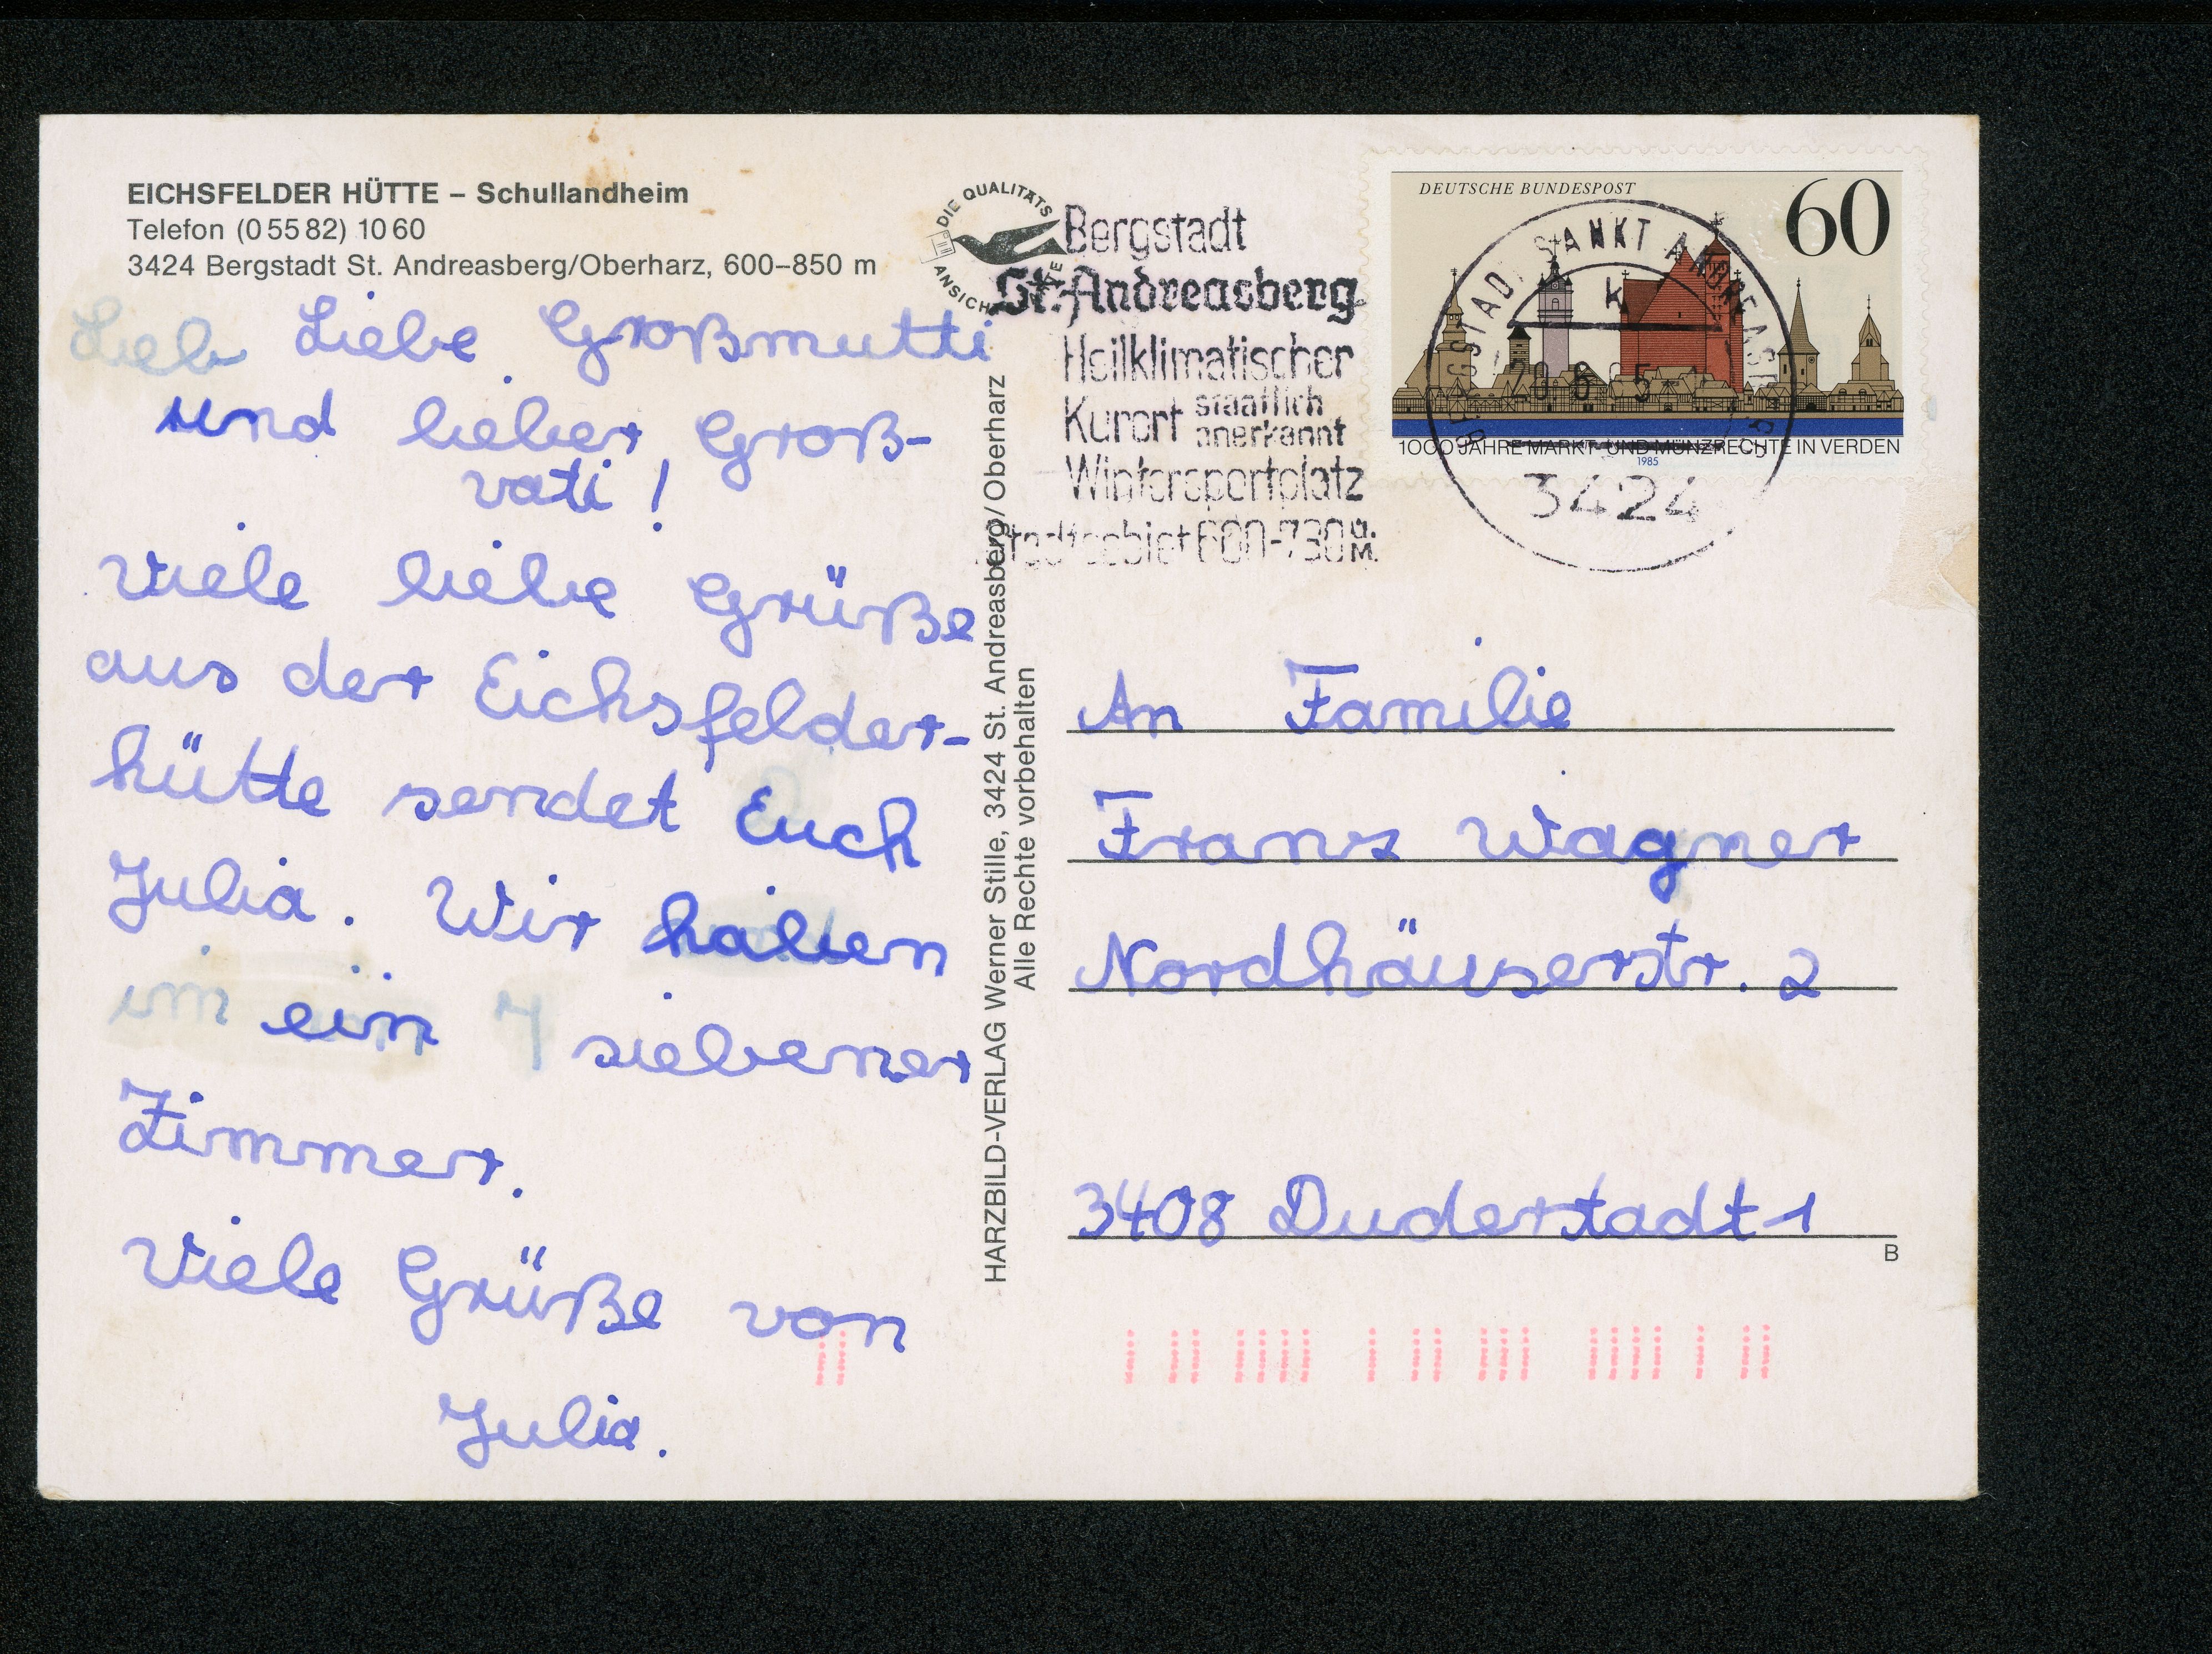 EICHSFELDER HÜTTE – Schullandheim
Telefon (0 55 82) 10 60
3424 Bergstadt St. Andreasberg/Oberharz, 600–850 m
Lieb Liebe Großmutti
und lieber Groß-
vati!
Viele liebe Grüße
aus der Eichsfelder-
hütte sendet Euch
Julia. Wir haben
im ein 7 siebener
Zimmer.
Viele Grüße von
Julia.
DIE QUALITÄTS
ANSICHTSKARTE
HARZBILD-VERLAG Werner Stille, 3424 St. Andreasberg/Oberharz
Alle Rechte vorbehalten
Bergstadt
St. Andreasberg
Heilklimatischer
Kurort staatlich
anerkannt
Wintersportplatz
Stadtgebiet 600-730 ü.
M.
DEUTSCHE BUNDESPOST
60
1000 JAHRE MARKT- UND MÜNZRECHTE IN VERDEN
1985
BERGSTADT SANKT ANDREASBERG
k
3424
An Familie
Franz Wagner
Nordhäuserstr. 2
3408 Duderstadt 1
B